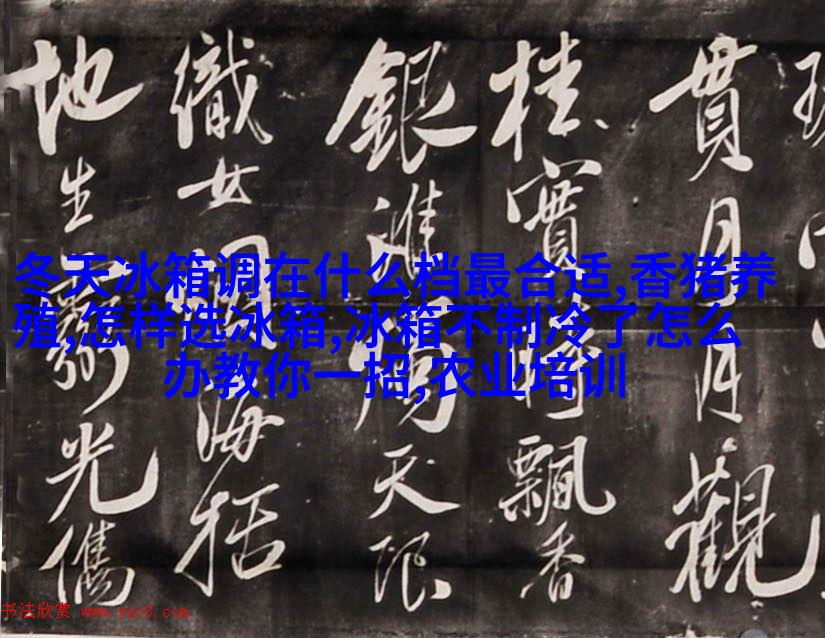 貫月月觀
桂實飄香
銀天限
織女海括
地生光儁
冬天冰箱调在什么档最合适,香猪养
殖,怎样选冰箱,冰箱不制冷了怎么
办教你一招,农业培训
书法欣赏 www.yac8.com